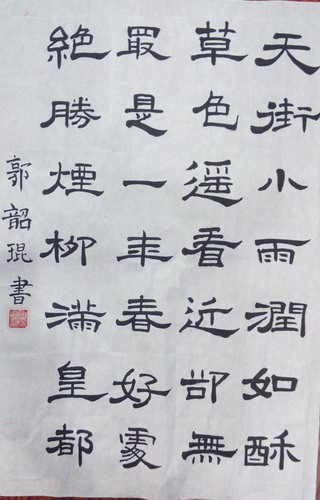 天街小雨潤如酥
草色遥看近卻無
最是一年春好處
絕勝煙柳滿皇都
郭韶琨書